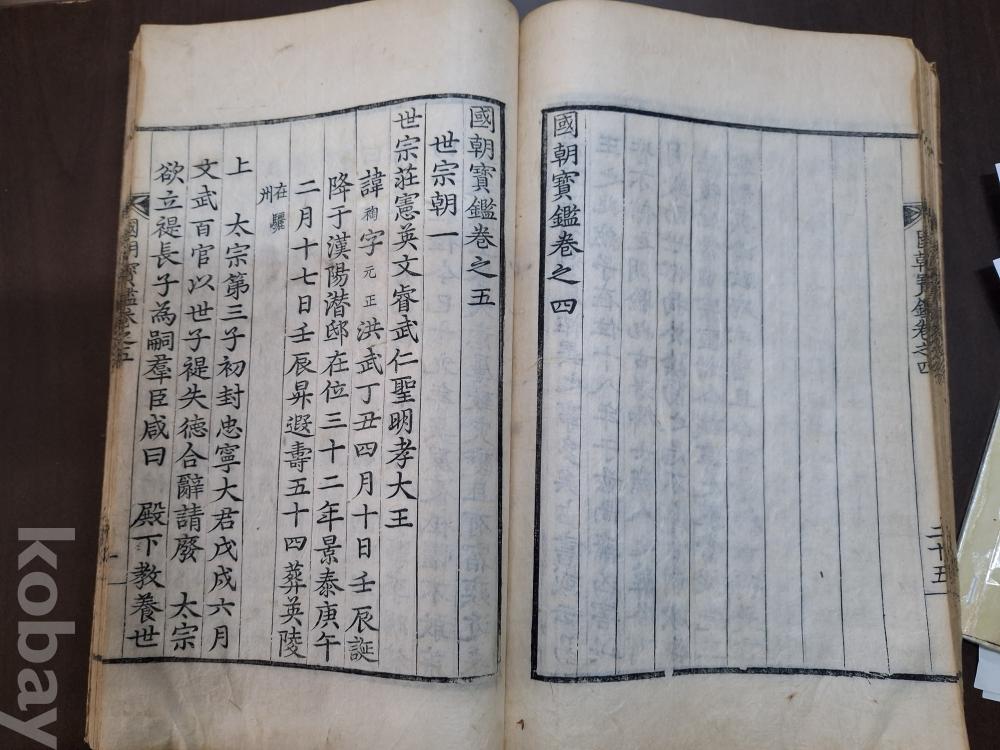 國朝寶鑑卷之四
二十五
國朝寶鑑卷之四
國朝寶鑑卷之五
世宗朝一
世宗莊憲英文睿武仁聖明孝大王
諱祹字元正洪武丁丑四月十日壬辰誕
降于漢陽潛邸在位三十二年景泰庚午
二月十七日壬辰昇遐壽五十四葬英陵
在驪州
上 太宗第三子初封忠寧大君戊戌六月
文武百官以世子禔失德合辭請廢 太宗
欲立禔長子為嗣羣臣咸曰 殿下教養世
國朝寶鑑卷之五
一
kobay